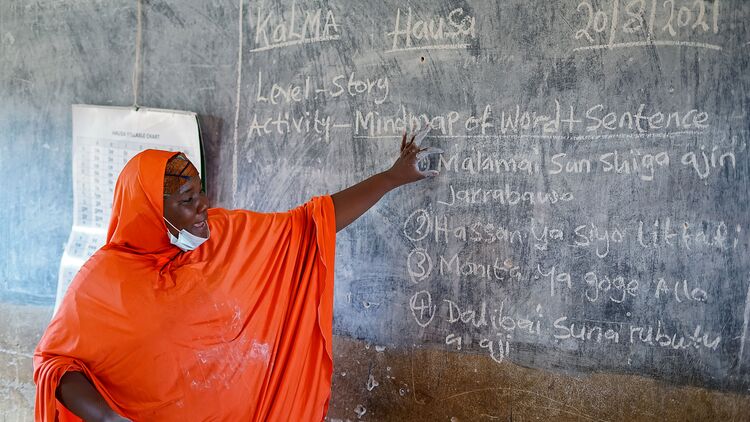 KalMA
Hausa
20/8/2021
Level-Story
Activity-Mindmap of Word + Sentence
Malamai Sun Shiga ajin
Jarrabawa
② Hassan ya siyo littafi
③ Monita ya goge Allo
④ Dalibai suna rubutu
a aji
HAUSA SYLLABLE CHART